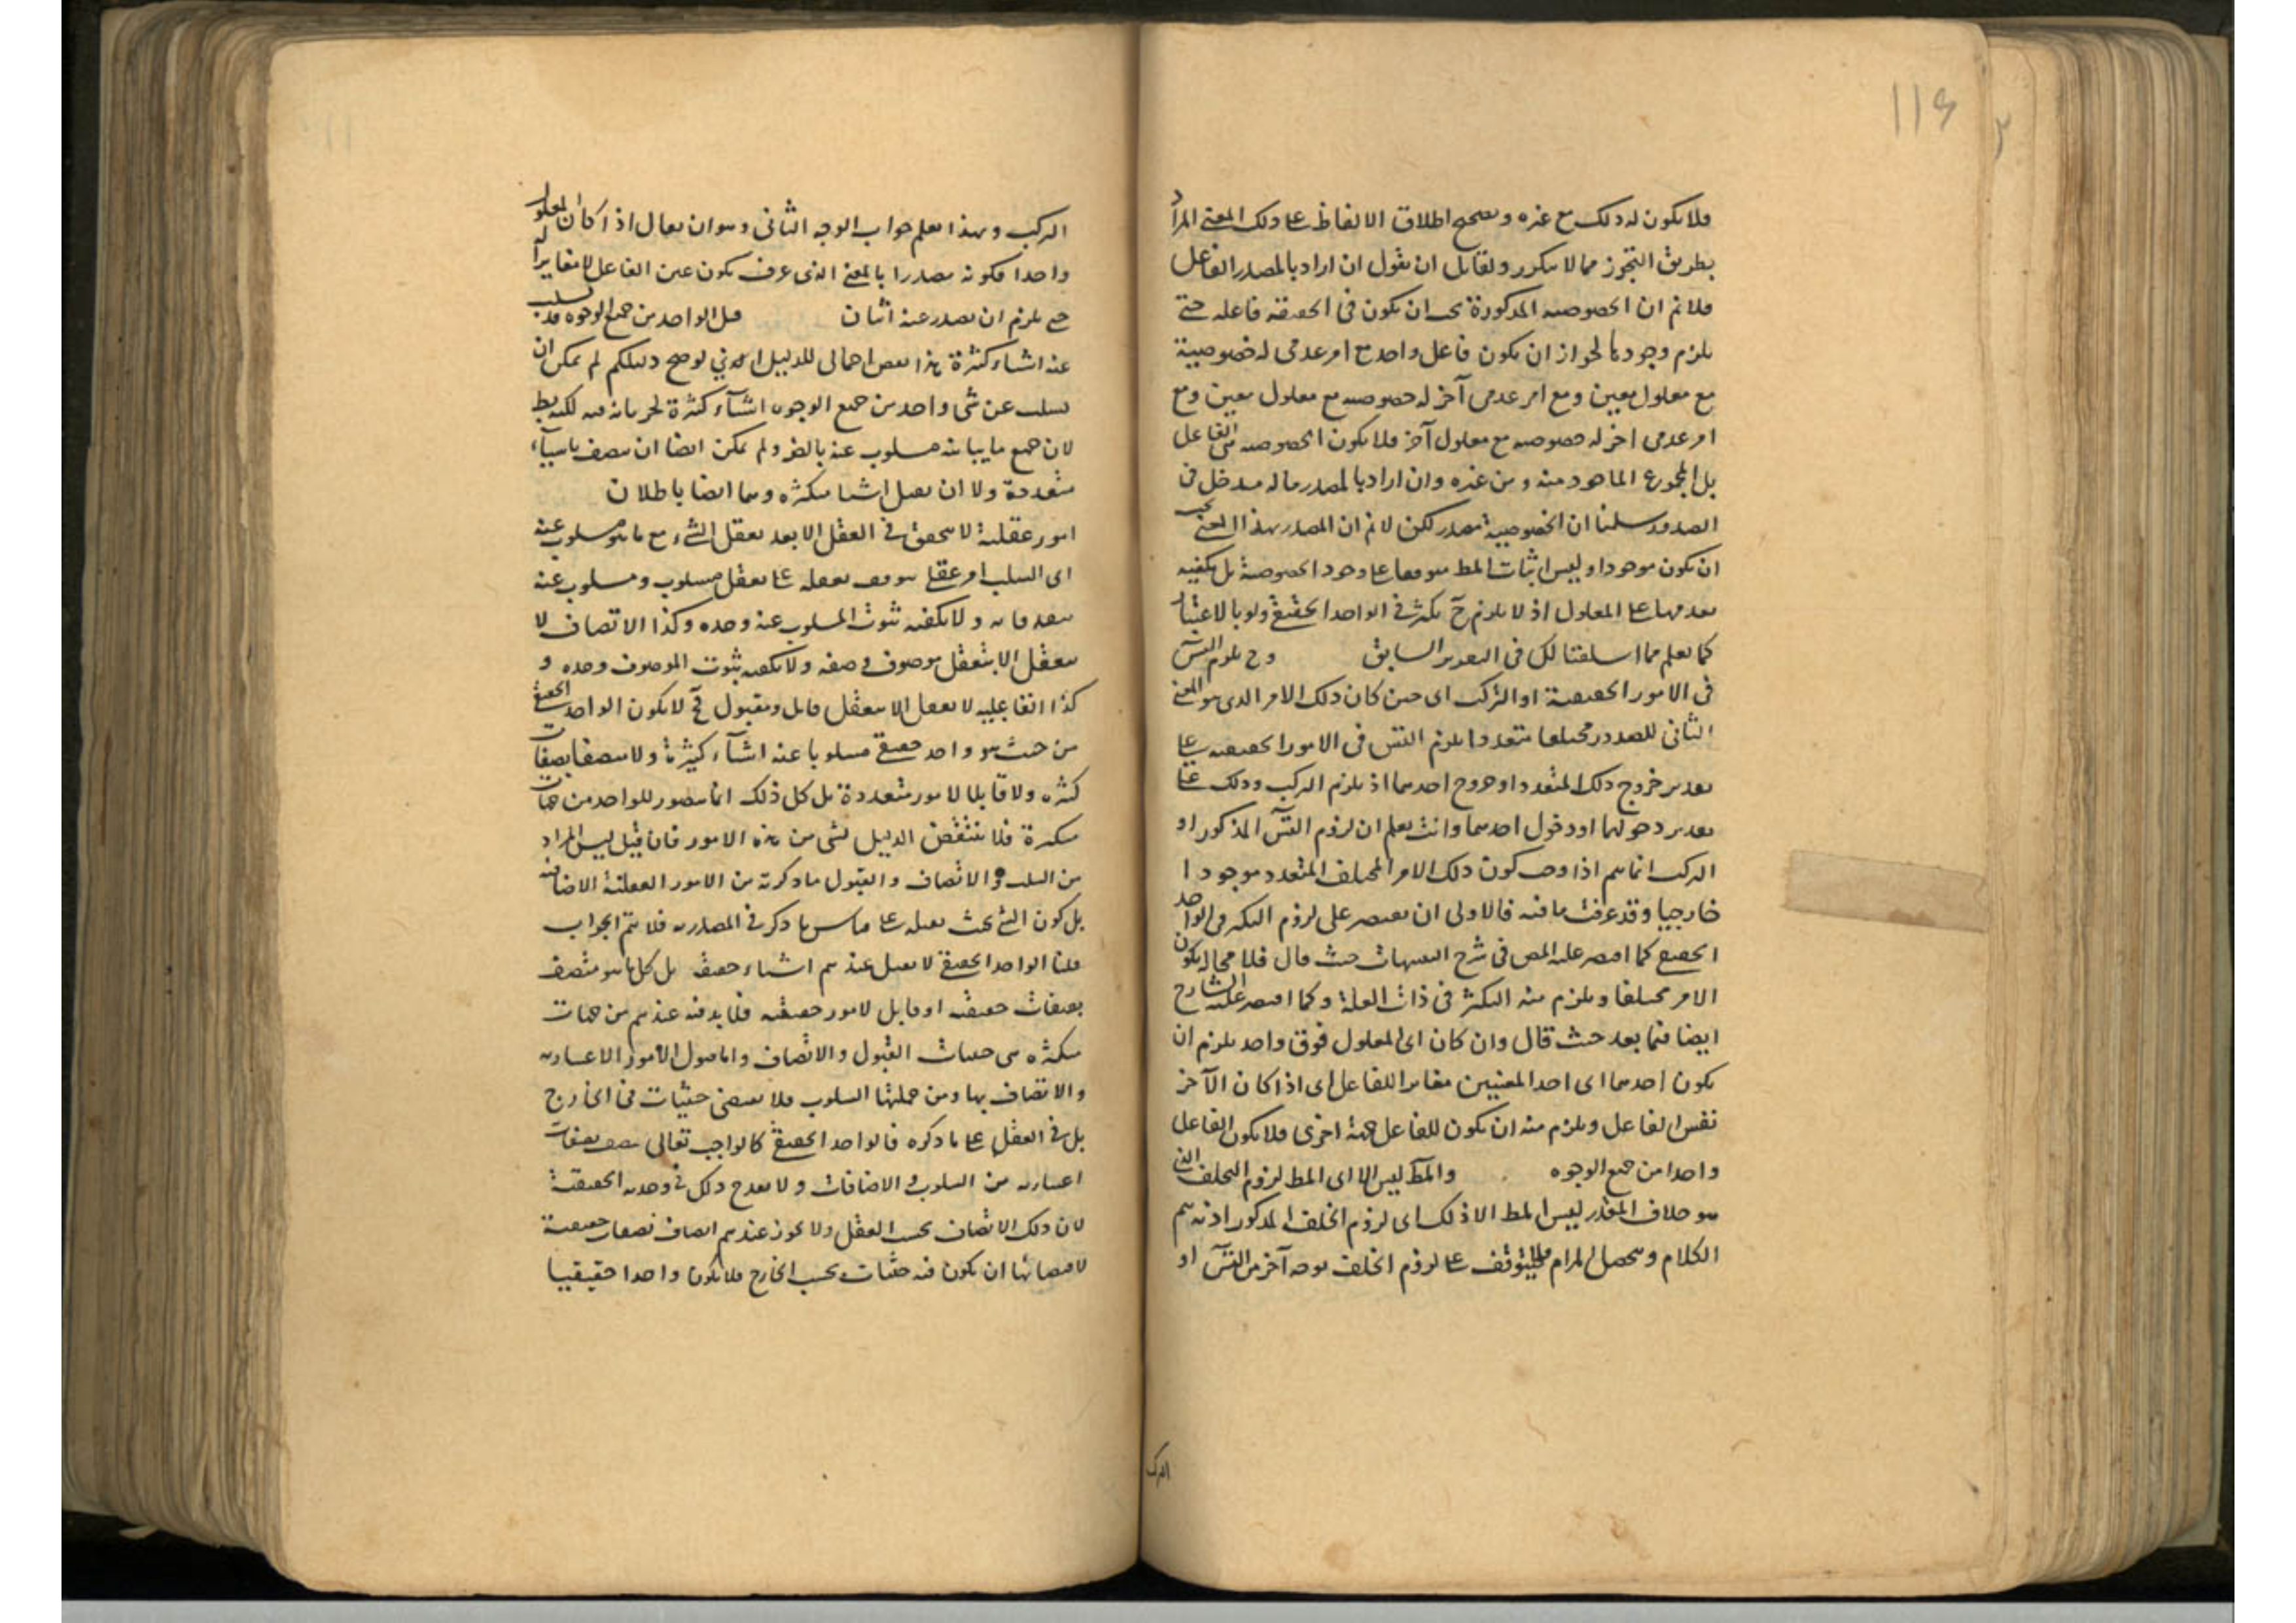 ١١٤
فلا يكون له ذلك مع غيره و يصح اطلاق الالفاظ على ذلك المعنى المراد
بطريق التجوز مما لا ينكر ولقايل ان يقول ان اراد بالمصدر الفاعل
فلا نم ان الخصوصية المذكورة يجب ان يكون فى الحقيقة فاعله حتى
يلزم وجودها لجواز ان يكون فاعل واحد مع امر عدمى له خصوصية
مع معلول معين ومع امر عدمى آخر له خصوصية مع معلول معين ومع
امر عدمى اخر له خصوصية مع معلول آخر فلا يكون الخصوصية هى الفاعل
بل المجموع الماخوذ منه ومن غيره وان اراد بالمصدر ما له مدخل فى
الصدور سلمنا ان الخصوصية مصدر لكن لا نم ان المصدر بهذا المعنى يجب
ان يكون موجودا وليس اثبات المط موقوفا على وجود الخصوصية بل يكفيه
تقدمها على المعلول اذ لا يلزم ح تكثر فى الواحد الحقيقى ولو بالاعتبار
كما تعلم مما اسلفنا لك فى التقدير السابق وح يلزم التس
فى الامور الحقيقية او التركب اى حين كان ذلك الامر الذى هو المعنى
الثانى للصدور مختلفا متعددا يلزم التس فى الامور الحقيقية على
تقدير خروج ذلك المتعدد او خروج احدهما اذ يلزم التركب وذلك على
تقدير دخولهما او دخول احدهما وانت تعلم ان لزوم التس المذكور او
التركب انما يتم اذا وجب كون ذلك الامر المختلف المتعدد موجودا
خارجيا وقد عرفت ما فيه فالاولى ان يقتصر على لزوم التكثر فى الواحد
الحقيقى كما اقتصر عليه المص فى شرح التنبيهات حيث قال فلا محالة يكون
الامر مختلفا ويلزم منه التكثر فى ذات العلة وكما اقتصر عليه الشارح
ايضا فيما بعد حيث قال وان كان اى المعلول فوق واحد يلزم ان
يكون احدهما اى احد المعنيين مغايرا للفاعل اى اذا كان الآخر
نفس الفاعل ويلزم منه ان يكون للفاعل جهة اخرى فلا يكون الفاعل
واحدا من جميع الوجوه والمط ليس الا اى المط لزوم الخلف الذى
هو خلاف المقدر ليس المط الا ذلك اى لزوم الخلف المذكور اذ به يتم
الكلام ويحصل المرام فلا يتوقف على لزوم الخلف بوجه آخر من التس او
الترك
التركب وبهذا يعلم جواب الوجه الثانى وهو ان يقال اذا كان المعلول
واحدا فكونه مصدرا بالمعنى الذى عرف يكون عين الفاعل لا مغايرا له
حتى يلزم ان يصدر عنه اثنان قيل الواحد من جميع الوجوه قد يسلب
عنه اشياء كثيرة هذا نقض اجمالى للدليل اى لو صح دليلكم لم يمكن ان
يسلب عن شى واحد من جميع الوجوه اشياء كثيرة لجريانه فيه لكنه بط
لان جميع ما يباينه مسلوب عنه بالضرو لم يمكن ايضا ان يتصف باشياء
متعددة ولا ان يقبل اشيا متكثره وهما ايضا باطلان
امور عقلية لا يتحقق فى العقل الا بعد تعقل الشى مع ما هو مسلوب عنه
اى السلب امر عقلى يتوقف تعقله على تعقل مسلوب ومسلوب عنه
يتقدمانه ولا يكفيه ثبوت المسلوب عنه وحده وكذا الاتصاف لا
يتعقل الا بتعقل موصوف وصفة ولا يكفيه ثبوت الموصوف وحده و
كذا القابلية لا يعقل الا بتعقل قابل ومقبول فح لا يكون الواحد الحقيقى
من حيث هو واحد حقيقى مسلوبا عنه اشياء كثيرة ولا متصفا بصفات
كثيره ولا قابلا لامور متعددة بل كل ذلك انما يتصور للواحد من جهات
متكثرة فلا ينتقض الدليل بشى من هذه الامور فان قيل ليس المراد
من السلب والاتصاف والقبول ما ذكرته من الامور العقلية الاضافية
بل كون الشى بحيث يقبله على قياس ما ذكر فى المصدرية فلا يتم الجواب
قلنا الواحد الحقيقى لا يقبل عندهم اشياء حقيقية بل كل ما هو متصف
بصفات حقيقيه او قابل لامور حقيقيه فلا بد فيه عندهم من جهات
متكثره هى حيثيات القبول والاتصاف واما قبول الامور الاعتباريه
والاتصاف بها ومن جملتها السلوب فلا يقتضى حيثيات فى الخارج
بل فى العقل على ما ذكره فالواحد الحقيقى كالواجب تعالى يتصف بصفات
اعتباريه من السلوب والاضافات ولا يقدح ذلك فى وحدته الحقيقية
لان ذلك الاتصاف بحسب العقل ولا يجوز عندهم اتصافه بصفات حقيقية
لاقتضائها ان يكون فيه حيثيات بحسب الخارج فلا يكون واحدا حقيقيا